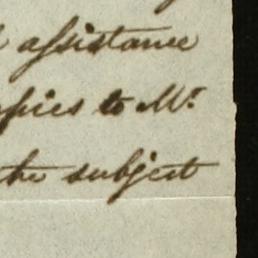 assistance
to Mr.
the subject